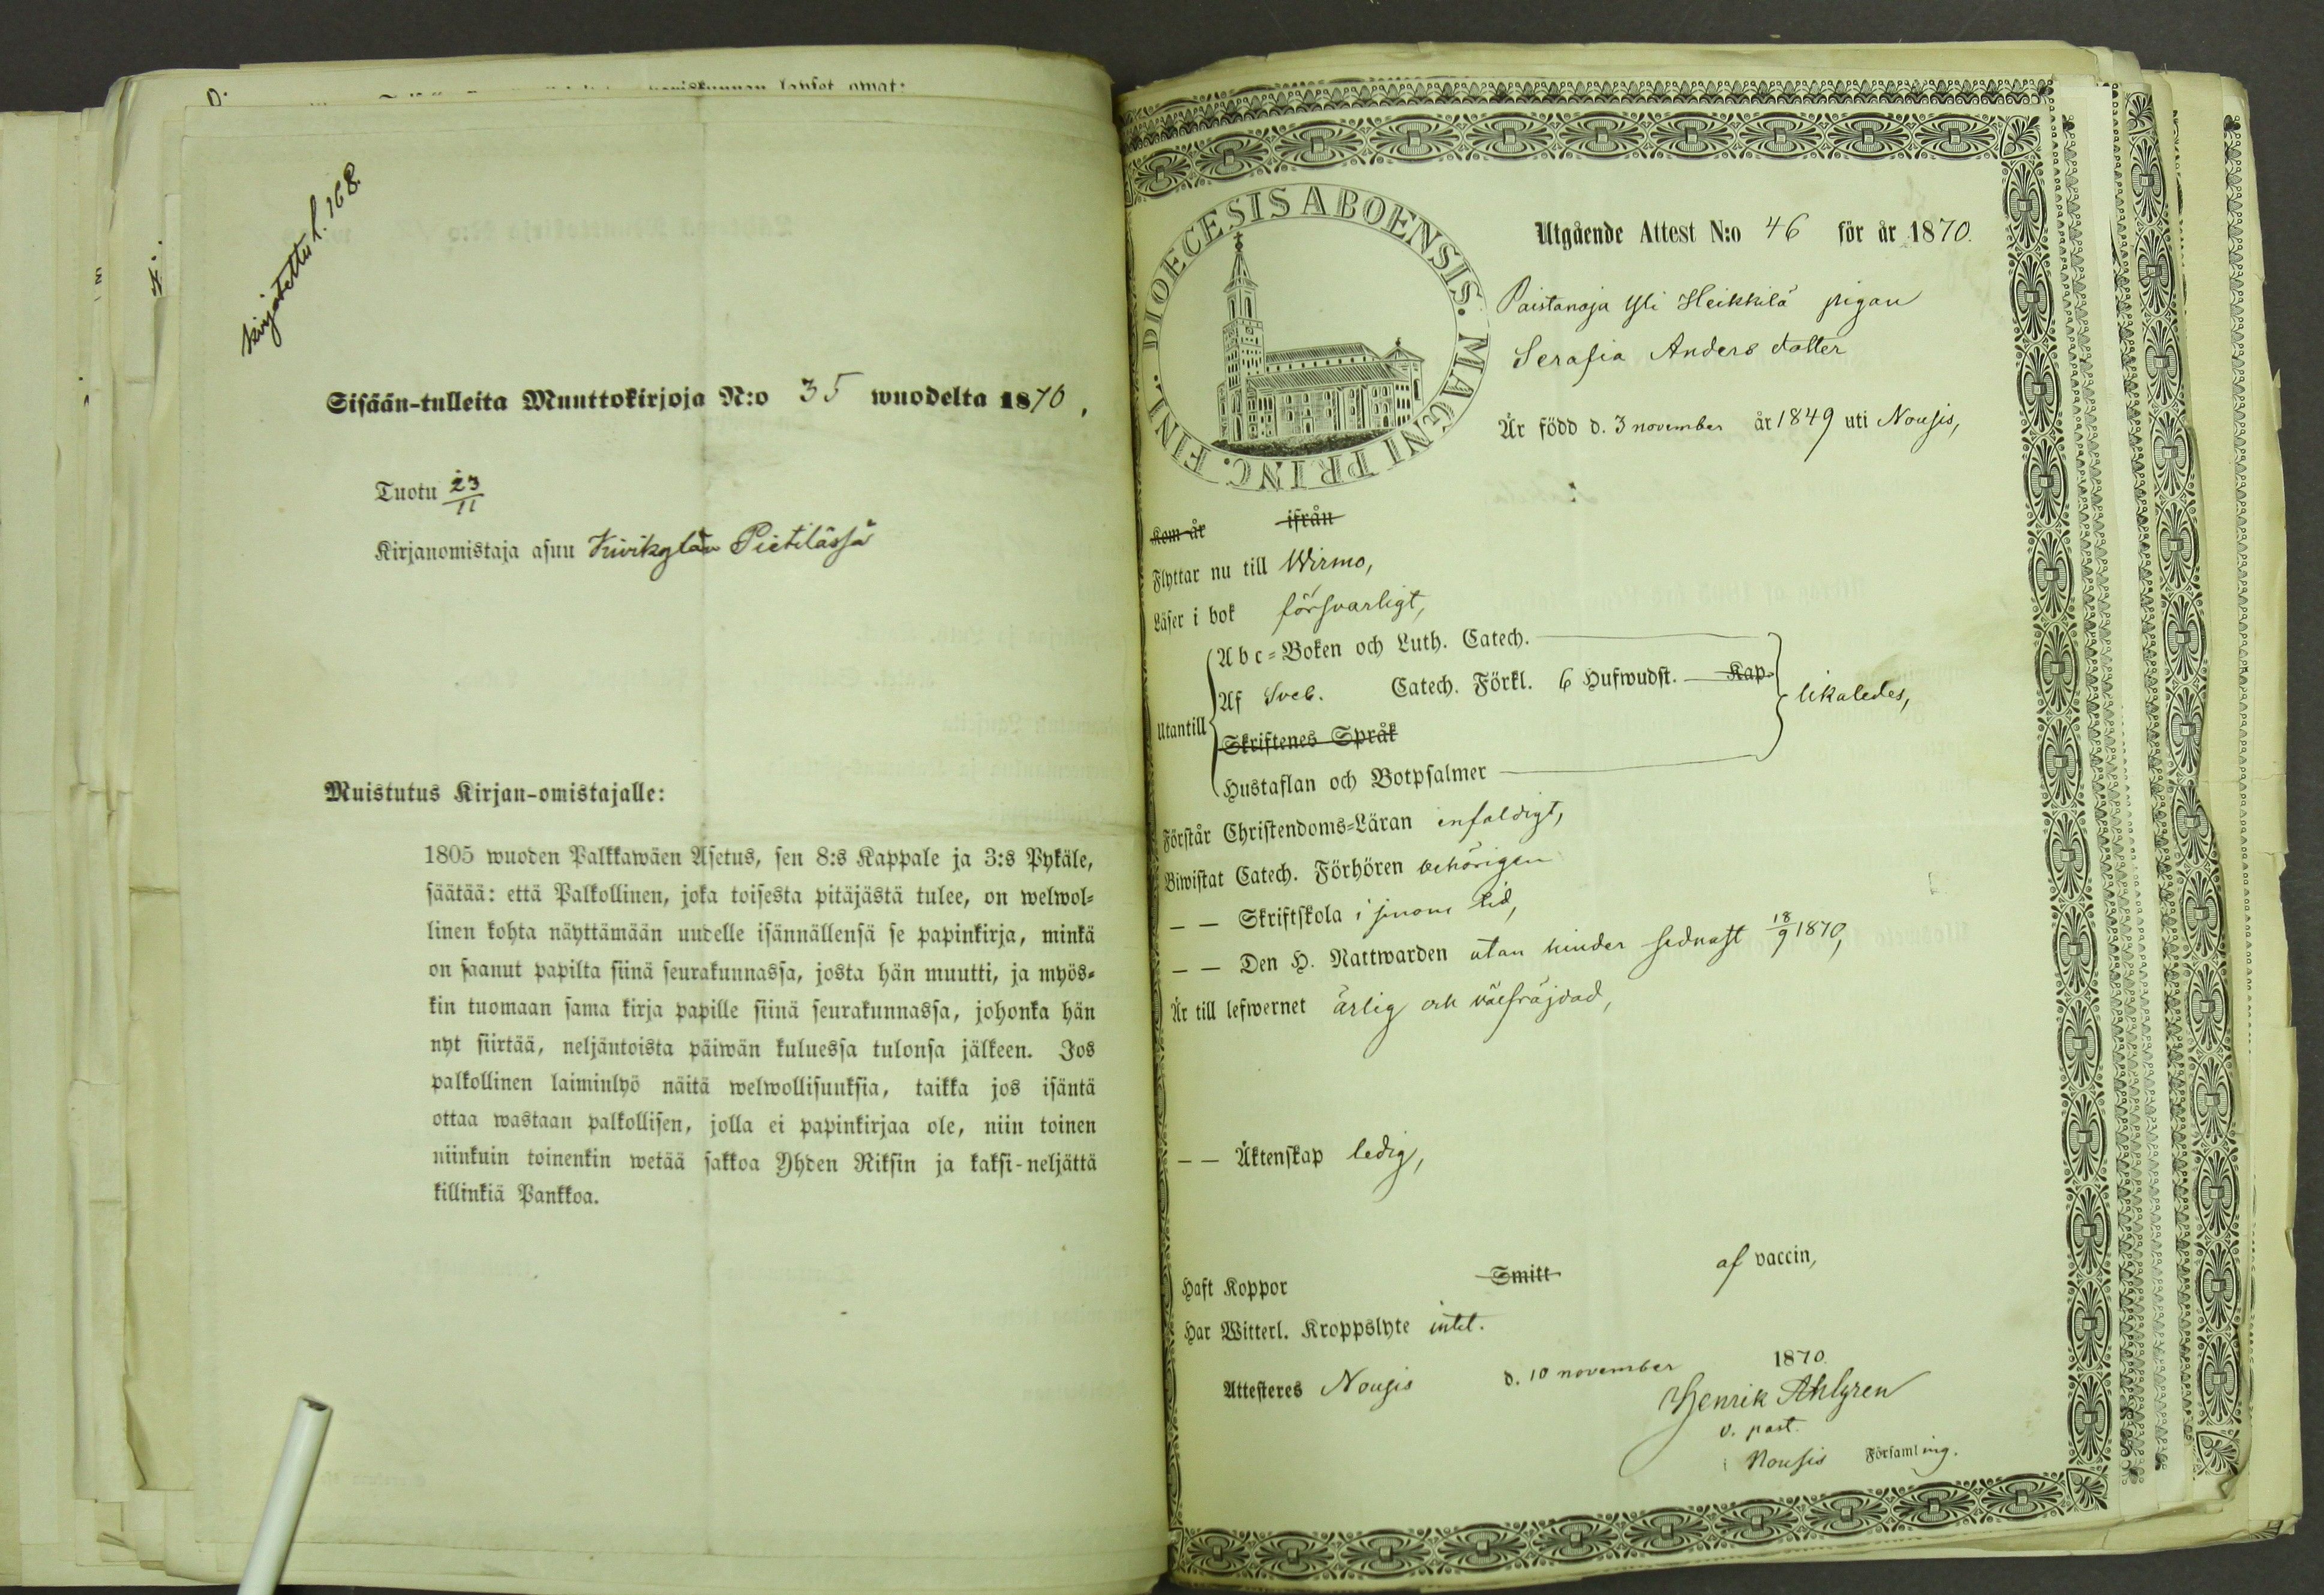 kirjoitettu s. 168.
Sisään-tulleita Muuttokirjoja N:o 35 wuodelta 1870.
Tuotu 23/11
Kirjanomistaja asuu Kivikylän Pietilässä
Muistutus Kirjan-omistajalle:
1805 wuoden Palkkawäen Asetus, sen 8:s Kappale ja 3:s Pykäle,
säätää: että Palkollinen, joka toisesta pitäjästä tulee, on welwol-
linen kohta näyttämään uudelle isännällensä se papinkirja, minkä
on saanut papilta siinä seurakunnassa, josta hän muutti, ja myös-
kin tuomaan sama kirja papille siinä seurakunnassa, johonka hän
nyt siirtää, neljäntoista päiwän kuluessa tulonsa jälkeen. Jos
palkollinen laiminlyö näitä welwollisuuksia, taikka jos isäntä
ottaa wastaan palkollisen, jolla ei papinkirjaa ole, niin toinen
niinkuin toinenkin wetää sakkoa Yhden Riksin ja kaksi-neljättä
killinkiä Pankkoa.
DIOECESIS ABOENSIS. MAGNI PRINC. FINL.
Utgående Attest N:o 46 för år 1870.
Paistanoja Yli Heikkilä pigan
Serafia Anders dotter
Är född d. 3 november år 1849 uti Nousis,
Kom år ifrån
Flyttar nu till Wirmo,
Läser i bok försvarligt,
Utantill
Abc-Boken och Luth. Catech.
Af Sveb. Catech. Förkl. 6 Hufwudst. Kap.
likaledes,
Skriftenes Språk
Hustaflan och Botpsalmer
Förstår Christendoms-Läran enfaldigt,
Biwistat Catech. Förhören behörigen
— — Skriftskola i sinom tid,
— — Den H. Nattwarden utan hinder sednast 18/9 1870,
Är till lefwernet ärlig och välfräjdad,
— — Äktenskap ledig,
Haft Koppor Smitt af vaccin,
Har Witterl. Kroppslyte intet.
Attesteres Nousis d. 10 november 1870.
Henrik Ahlgren
v. past.
i Nousis Församling.